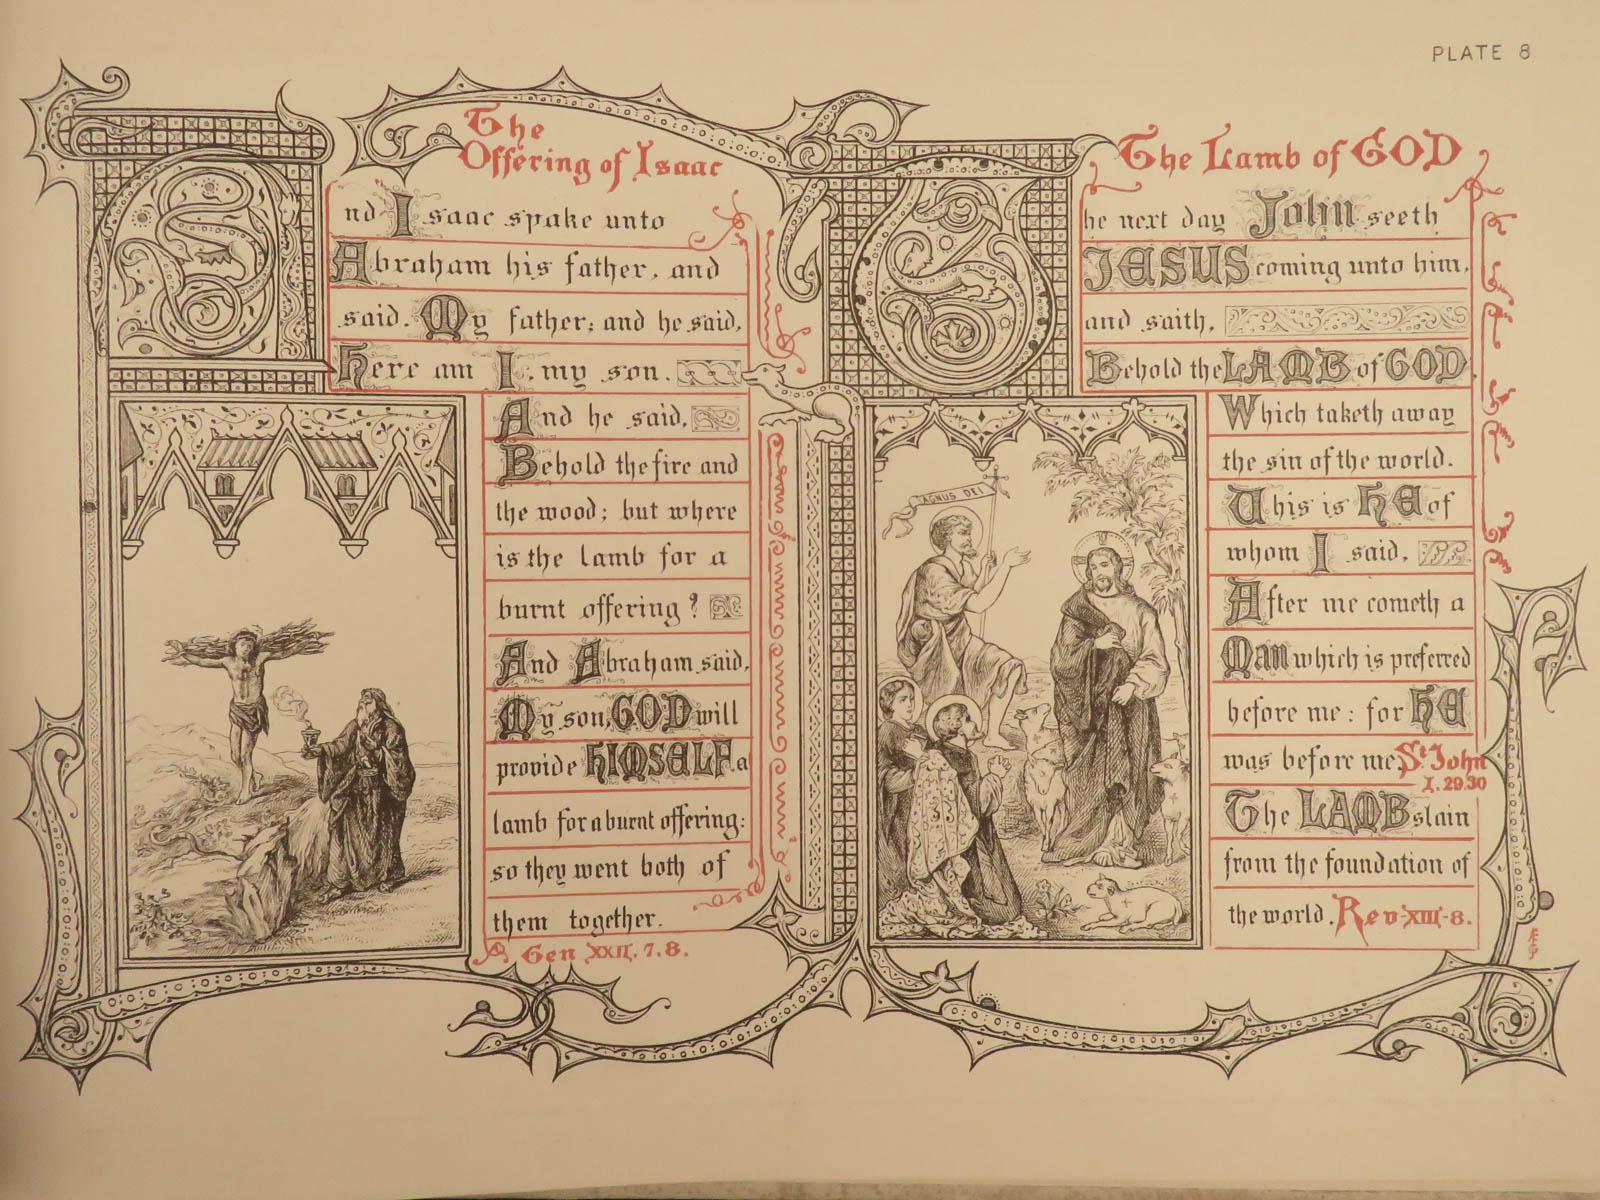 PLATE 8
The
Offering of Isaac
And Isaac spake unto
Abraham his father, and
said, My father; and he said,
Here am I, my son.
And he said,
Behold the fire and
the wood; but where
is the lamb for a
burnt offering?
And Abraham said,
My son, GOD will
provide HIMSELF a
lamb for a burnt offering:
so they went both of
them together.
Gen XXII. 7. 8.
The Lamb of GOD
The next day John seeth
JESUS coming unto him,
and saith,
Behold the LAMB of GOD
Which taketh away
the sin of the world.
This is HE of
whom I said,
After me cometh a
Man which is preferred
before me: for HE
was before me. St John
I. 29.30
The LAMB slain
from the foundation of
the world. Rev XIII-8.
AGNUS DEI